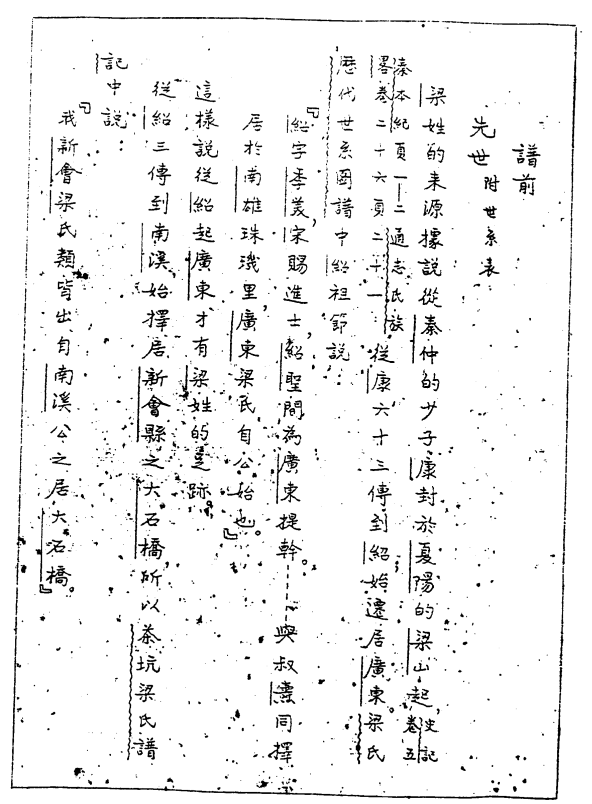 譜前
先世 附世系表
梁姓的来源據說從秦仲的少子康封於夏陽的梁山起，史記卷五
秦本紀頁一—二通志氏族
畧卷二十六頁二十一：從康六十三傳到紹始遷居廣東。梁氏
歷代世系圖譜中紹祖節說：
『紹字季美，宋賜進士，紹聖間為廣東提幹。……與叔燾同擇
居於南雄珠璣里，廣東梁氏自公始也。』
這樣說從紹起廣東才有梁姓的足跡。
從紹三傳到南溪，始擇居新會縣之大石橋，所以茶坑梁氏譜
記中說：
『我新會梁氏類皆出自南溪公之居大石橋。』